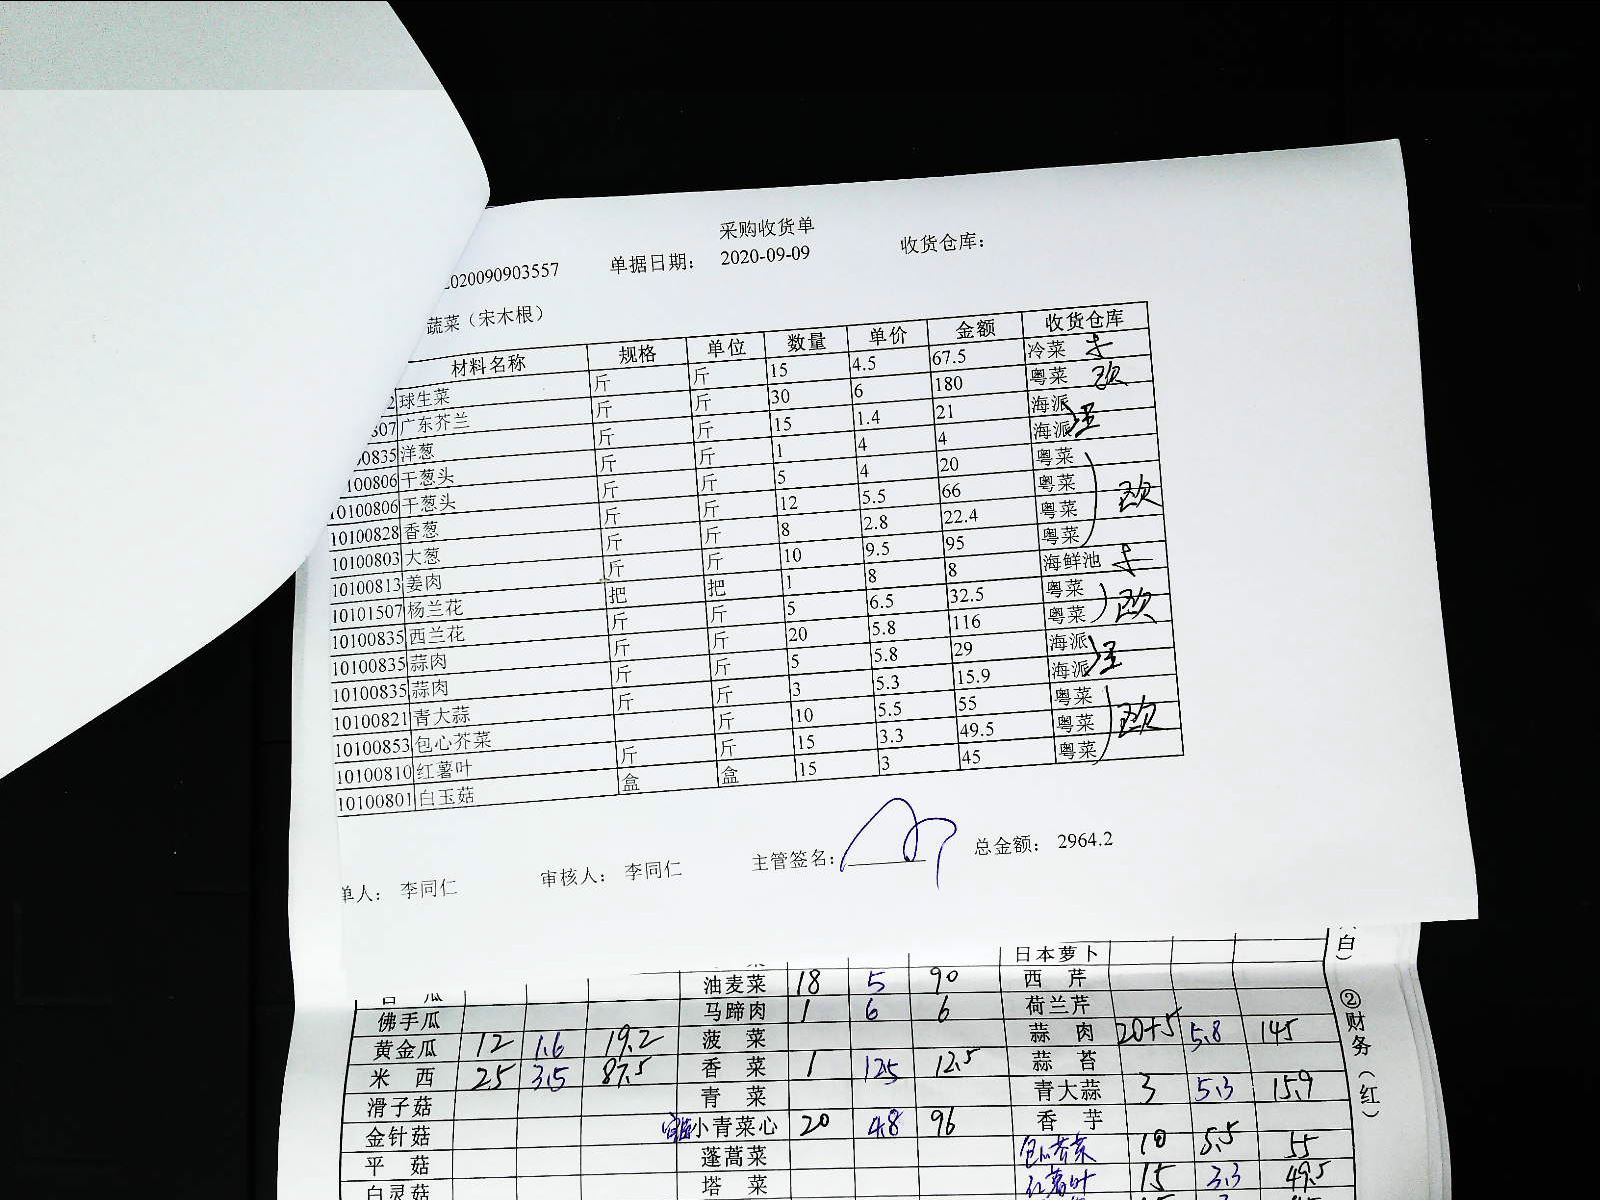 采购收货单
2020090903557 单据日期： 2020-09-09 收货仓库：
蔬菜（宋木根）
材料名称 规格 单位 数量 单价 金额 收货仓库
2 球生菜 斤 斤 15 4.5 67.5 冷菜
307 广东芥兰 斤 斤 30 6 180 粤菜 欧
0835 洋葱 斤 斤 15 1.4 21 海派
100806 干葱头 斤 斤 1 4 4 海派
10100806 干葱头 斤 斤 5 4 20 粤菜
10100828 香葱 斤 斤 12 5.5 66 粤菜 欧
10100803 大葱 斤 斤 8 2.8 22.4 粤菜
10100813 姜肉 斤 斤 10 9.5 95 粤菜
10101507 杨兰花 把 把 1 8 8 海鲜池
10100835 西兰花 斤 斤 5 6.5 32.5 粤菜 欧
10100835 蒜肉 斤 斤 20 5.8 116 粤菜
10100835 蒜肉 斤 斤 5 5.8 29 海派
10100821 青大蒜 斤 斤 3 5.3 15.9 海派
10100853 包心芥菜 斤 10 5.5 55 粤菜
10100810 红薯叶 斤 斤 15 3.3 49.5 粤菜 欧
10100801 白玉菇 盒 盒 15 3 45 粤菜
单人： 李同仁 审核人： 李同仁 主管签名： 总金额： 2964.2
日本萝卜
油麦菜 18 5 90 西芹
佛手瓜 马蹄肉 1 6 6 荷兰芹
黄金瓜 12 1.6 19.2 菠菜 蒜肉 20+5 5.8 145
米西 25 3.5 87.5 香菜 1 12.5 12.5 蒜苔
滑子菇 青菜 青大蒜 3 5.3 15.9
金针菇 小青菜心 20 4.8 96 香芋
平菇 蓬蒿菜 包心芥菜 10 5.5 55
白灵菇 塔菜 红薯叶 15 3.3 49.5
白）
②财务（红）